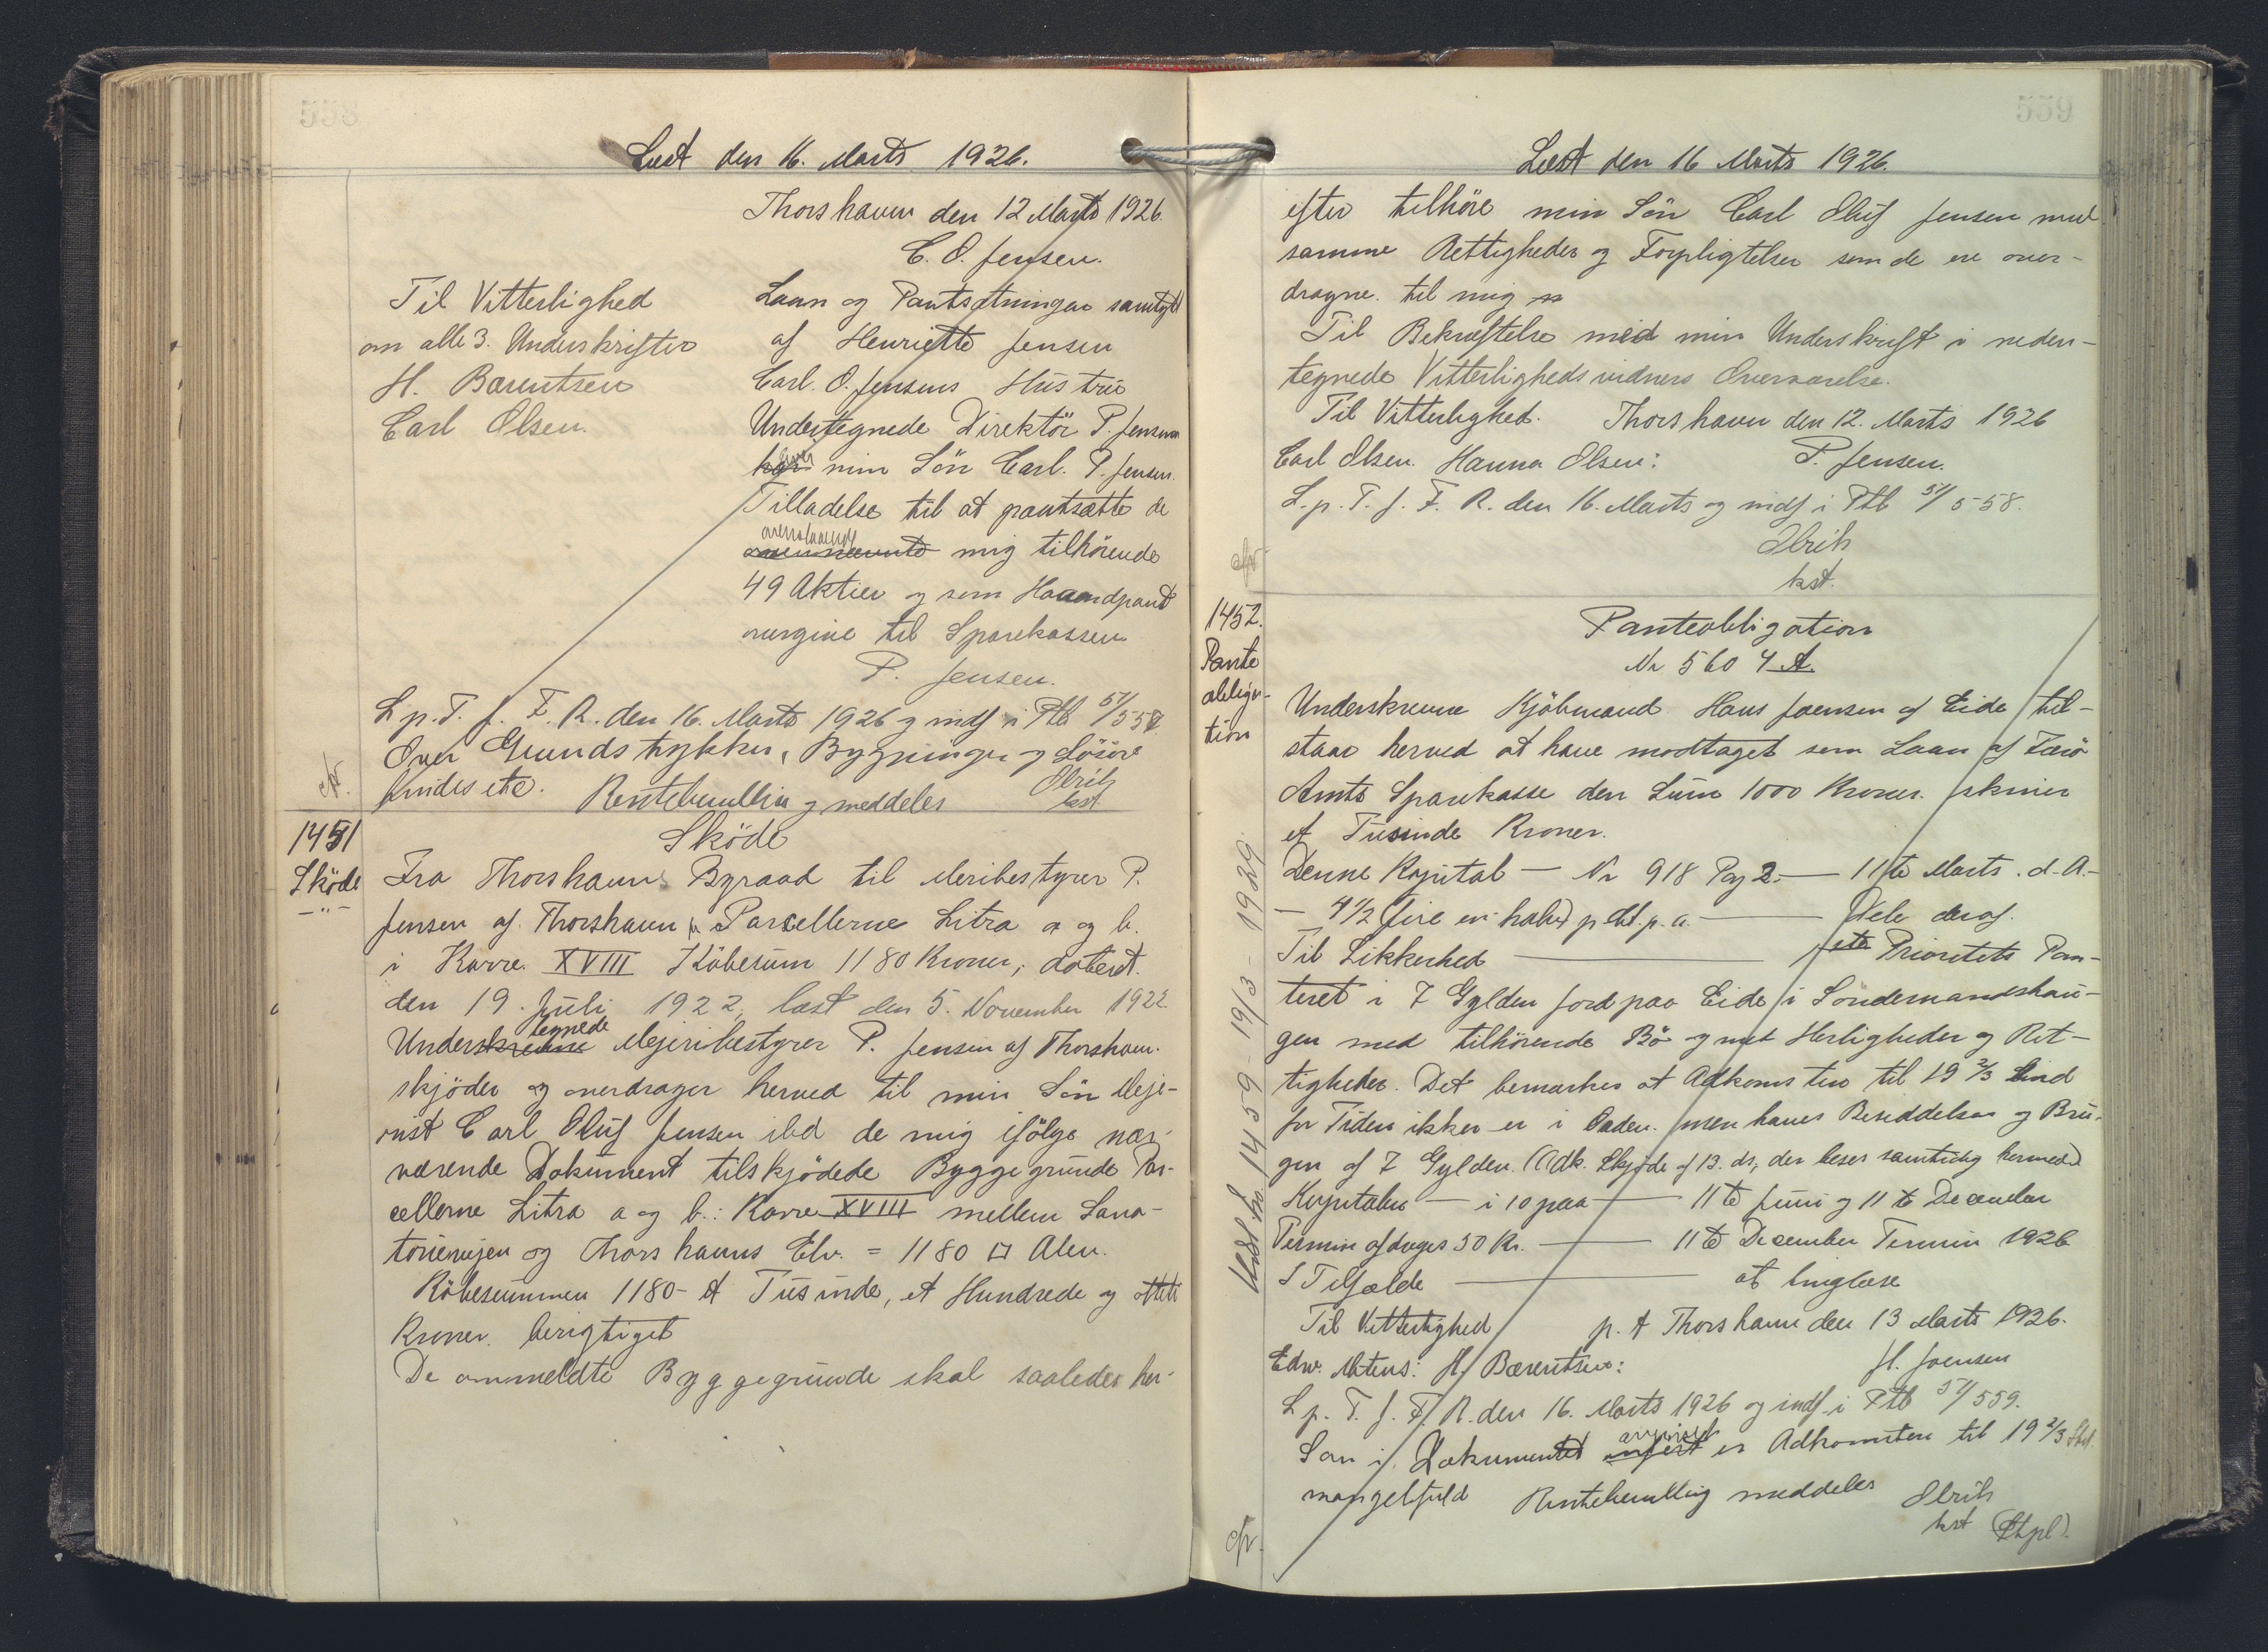 558
Læst den 16. Marts 1926.
Thorshavn den 12 Marts 1926.
C. O. Jensen.
Til Vitterlighed
om alle 3. Underskrifter
H. Barentsen
Carl Olsen.
Laan og Pantsætningen samtykt
af Henriette Jensen
Carl. O. Jensens Hustru
Undertegnede Direktör P. Jensen
giver min Sön Carl. P. Jensen
Tilladelse til at pantsætte de
ovenstaaende mig tilhörende
49 Aktier og som Haandpant
overgive til Sparekassen
P. Jensen.
L. p. T. f. F. R. den 16. Marts 1926 og indf i Ptb 51/557.
Over Grundstykker, Bygninger og Lösöre
findes etc. Rentebevilling meddeles
Olrik
kst
1451
Sköde
-"-
Sköde
Fra Thorshavns Byraad til Meribestyrer P.
Jensen af Thorshavn på Parcellerne Litra a og b.
i Karre XVIII Köbesum 1180 Kroner, dateret.
den 19. Juli 1922, læst den 5. November 1922
Undertegnede Mejeribestyrer P. Jensen af Thorshavn.
skjöder og overdrager herved til min Sön Meje-
rist Carl Oluf Jensen ibd de mig ifölge nær-
værende Dokument tilskjödede Byggegrunde Par-
cellerne Litra a og b.: Karre XVIII mellem Sana-
torievejen og Thorshavns Elv. = 1180 □ Alen.
Köbesummen 1180- Et Tusinde, et Hundrede og otteti
Kroner. berigtiget
De ommeldte Byggegrunde skal saaledes her-
559
Læst den 16 Marts 1926.
efter tilhöre min Sön Carl Oluf Jensen med
samme Rettigheder og Forpligtelser som de ere over-
dragne. til mig
Til Bekræftelse med min Underskrift i neden-
tegnede Vitterlighedsvidners Overværelse.
Til Vitterlighed. Thorshavn den 12. Marts 1926
Carl Olsen. Hanna Olsen: P. Jensen.
L. p. T. f. F. R. den 16. Marts og indf i Ptb 51/558.
Olrik
kst.
1452.
Pante
obliga-
tion
Panteobligation
Nr 560 4 A.
Underskrevne Kjöbmand Hans Joensen af Eide til-
staar herved at have modtaget som Laan af Færö
Amts Sparekasse den Sum 1000 Kroner. skriver
et Tusinde Kroner.
Denne Kapital — Nr 918 Pag 2. — 11te Marts. d. A. —
— 4½ fire en halv p Ct. p. a. — Dele deraf.
Til Sikkerhed — 1ste Prioritets Pan-
teret i 7 Gylden Jord paa Eide i Söndernandshau-
gen med tilhörende Bö og met Herligheder og Ret-
tigheder. Det bemærkes at Adkomsten til 19 2/3 Skind
for Tiden ikke er i Orden. men haves Besiddelsen og Bru-
gen af 7 Gylden. (Adk. Skjöde af 13. ds, der læses samtidig hermed)
Kapitalen — i 10 paa — 11te Juni og 11te December
Termin afdrages 50 Kr. — 11te December Termin 1926
I Tilfælde — at tinglæse
Til Vitterlighed p. t Thorshavn den 13 Marts 1926.
Edw. Mitens: H. Bærentsen: H. Joensen
L p. T. f. F. R. den 16. Marts 1926 og indf. i Ptb 51/559.
Som i Dokumentet er Adkomsten til 19 2/3 Skd.
mangelfuld Rentebevilling meddeles Olrik
kst
Udsl. Nr. 1459 - 19/3 - 1929.